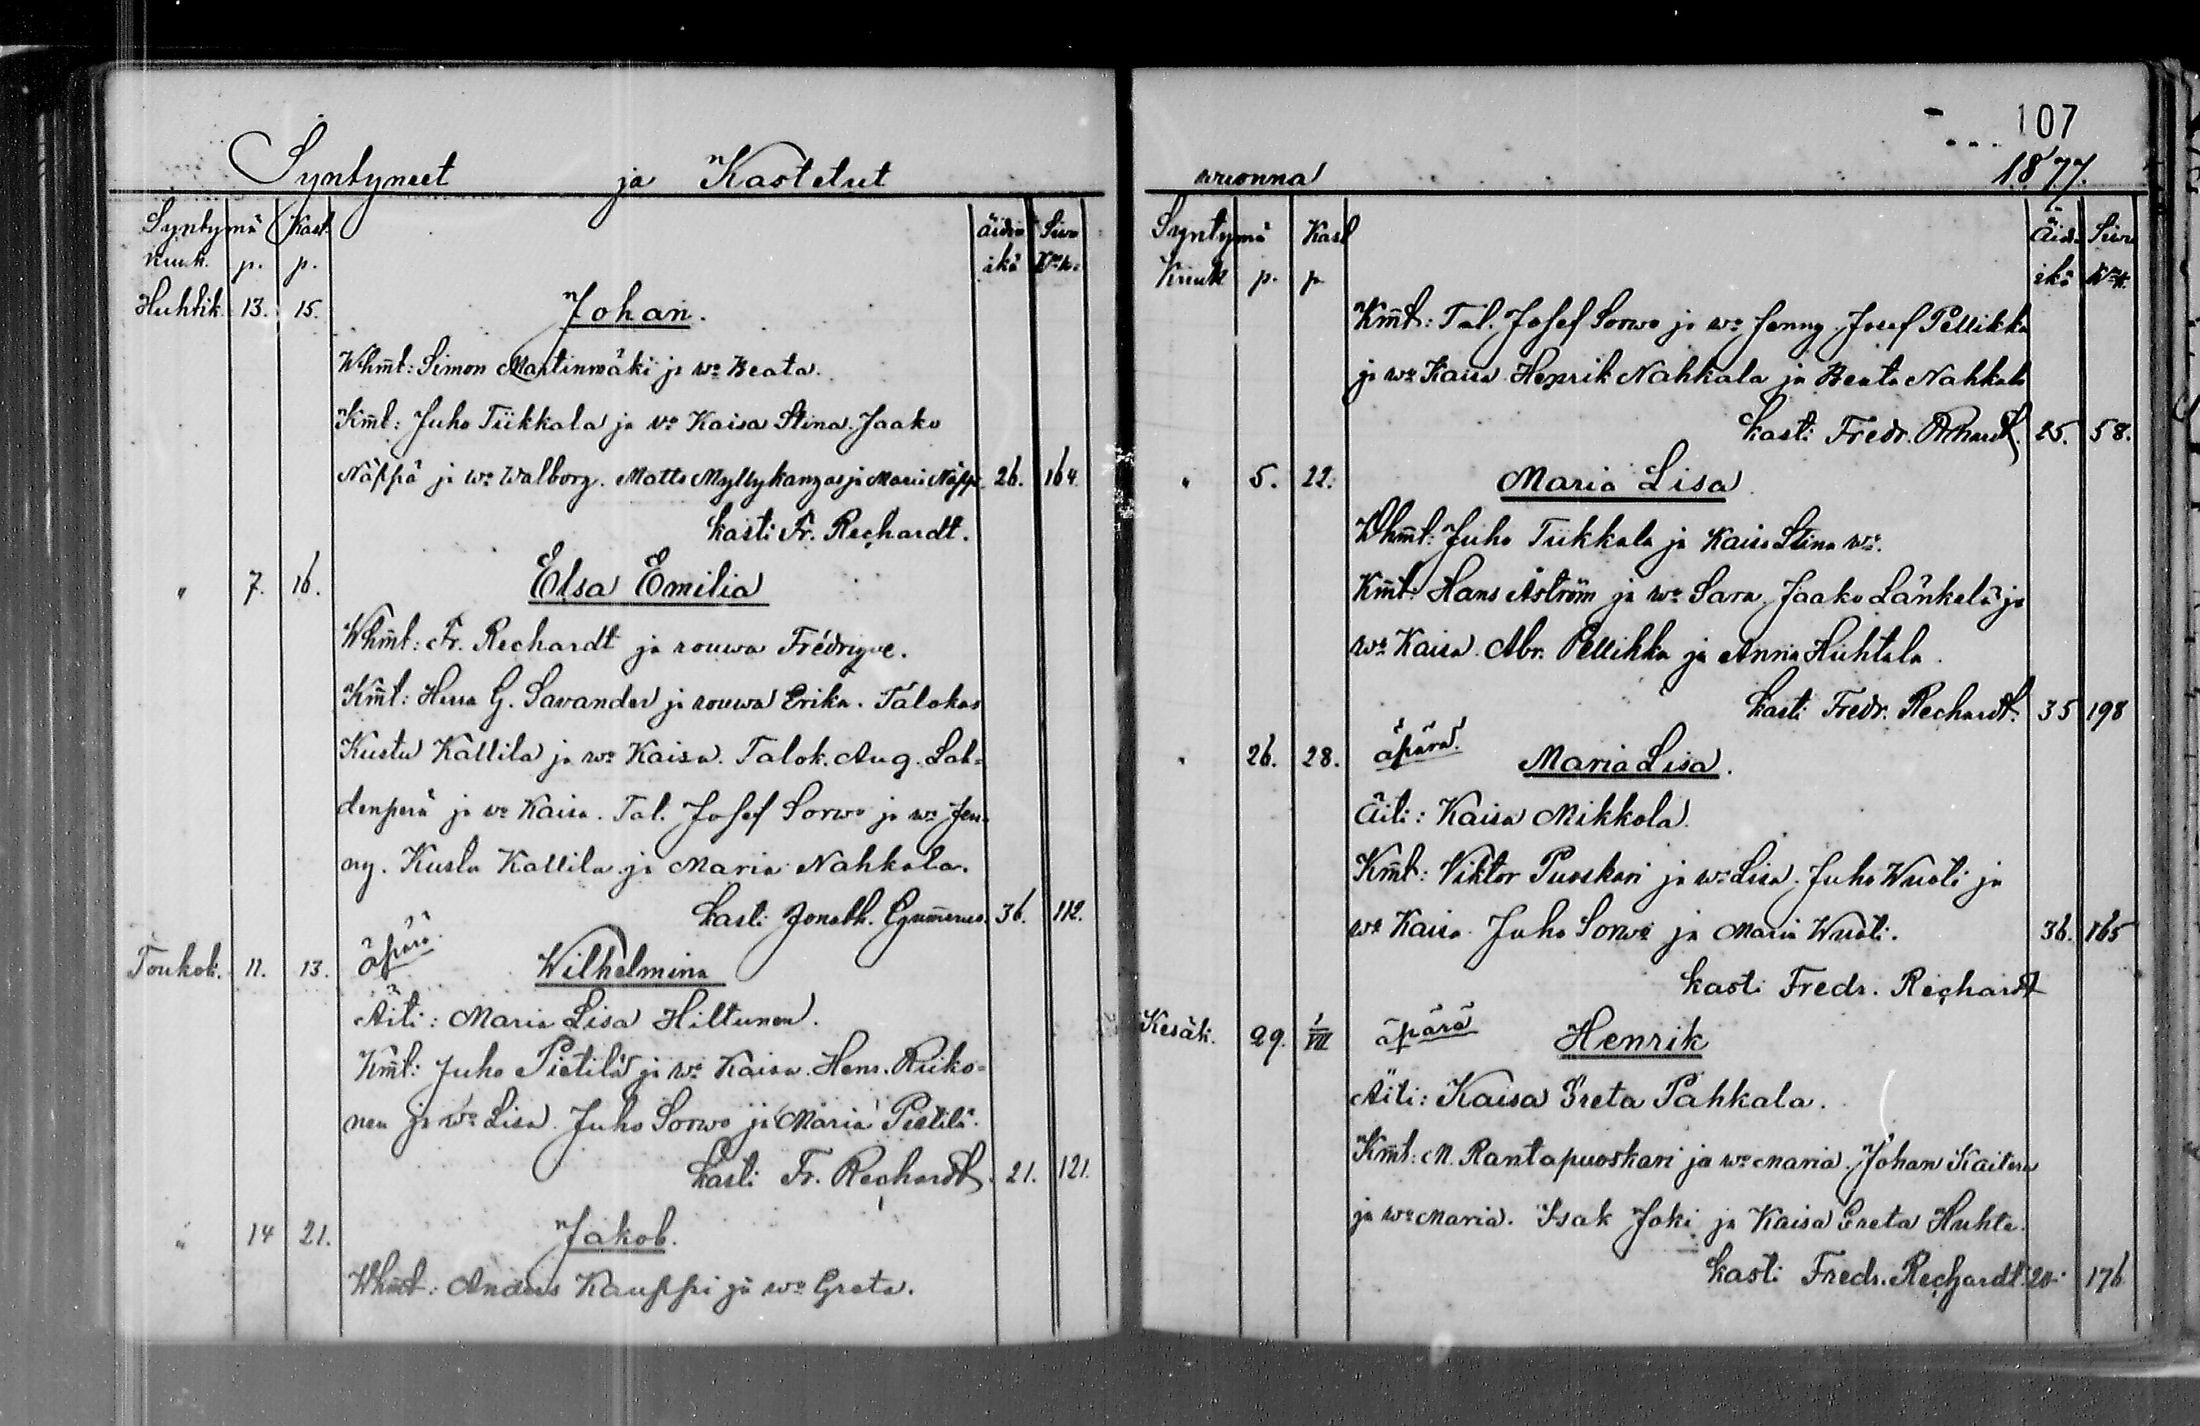 Syntyneet ja Kastetut
Syntymä Kast. äidin Siwu
kuuk. p. p. ikä
Huhtik. 13. 15. Johan.
Whmt: Simon Martinmäki ja wo Beata.
Kmt: Juho Tiikkala ja wo Kaisa Stina. Jaako
Näppä ja wo Walborg. Matts Myllykangas ja Maria Näppä 26. 164.
kasti Fr. Rechardt.
" 7. 16. Elsa Emilia
Whmt: Fr. Rechardt ja rouwa Fredrique.
Kmt: Herra G. Savander ja rouwa Erika. Talokas
Kustu Kallila ja wo Kaisa. Talok. Aug. Lah-
denperä ja wo Kaisa. Tal. Josef Sorwo ja wo Jen-
ny. Kusta Kallila ja Maria Nahkala.
kasti Jonath. 36. 112.
Toukok. 11. 13. äpärä. Wilhelmina
Äiti: Maria Lisa Hiltunen.
Kmt: Juho Pietilä ja wo Kaisa. Henr. Riiko-
nen ja wo Lisa. Juho Sorwo ja Maria Pietilä.
kasti Fr. Rechardt. 21. 121.
" 14 21. Jakob.
Whmt: Anders Kauppi ja wo Greta.
107
wuonna 1877.
Syntymä Kast Äid. Siwu
Kuuk p. p. ikä
Kmt: Tal. Josef Sorwo ja wo Jenny. Josef Pellikka
ja wo Kaisa. Henrik Nahkala ja Beata Nahkala
kasti Fredr. Rechardt. 25. 58.
" 5. 22. Maria Lisa
Whmt: Juho Tiikkala ja Kaisa Stina wo.
Kmt: Hans Åström ja wo Sara. Jaako Länkelä ja
wo Kaisa. Abr. Pellikka ja Anna Huhtala.
kasti Fredr. Rechardt. 35 198
" 26. 28. äpärä. Maria Lisa.
Äiti: Kaisa Mikkola.
Kmt: Viktor Puoskari ja wo Lisa. Juho Wuoti ja
wo Kaisa. Juho Sorwo ja Maria Wuoti. 36. 165
kasti Fredr. Rechardt
Kesäk. 29. 1/VII äpärä Henrik
Äiti: Kaisa Greta Pahkala.
Kmt: M. Rantapuoskari ja wo Maria. Johan Kaitera
ja wo Maria. Isak Joki ja Kaisa Greta Huhta.
kasti Fredr. Rechardt 20. 176